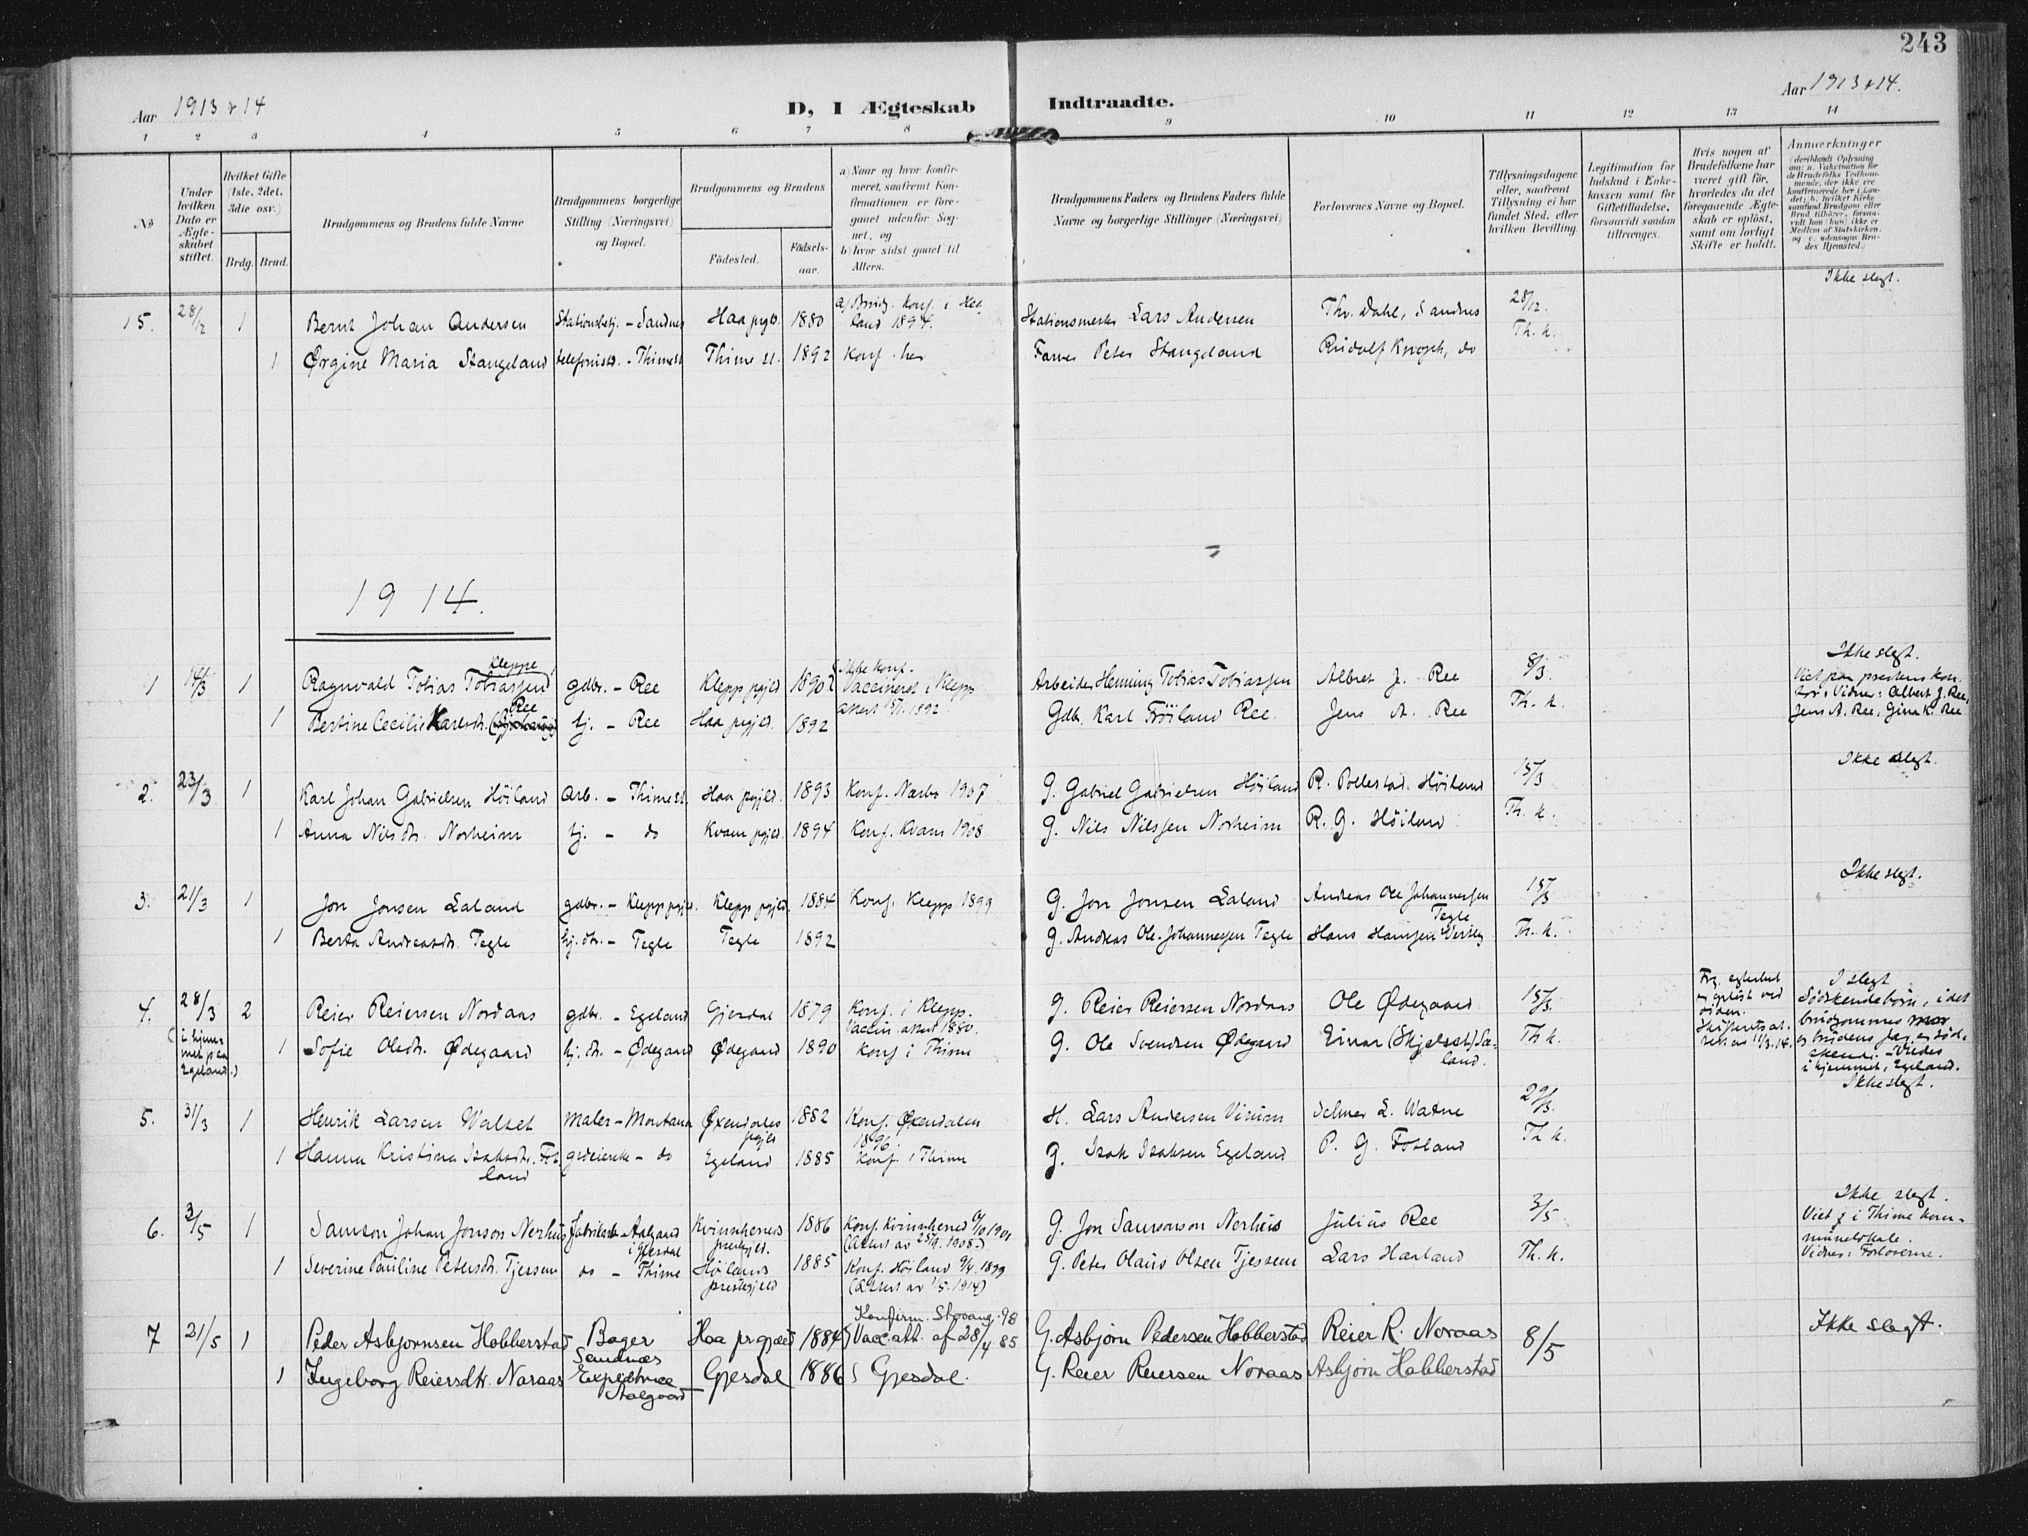 243
Aar 1913 & 14
D, I Ægteskab Indtraadte.
Aar 1913 & 14.
1 2 3 4 5 6 7 8 9 10 11 12 13 14
No
Under hvilken Dato er Ægteskabet stiftet.
Hvilket Gifte (1ste, 2det, 3die osv.)
Brdg. Brud.
Brudgommens og Brudens fulde Navne
Brudgommens borgerlige Stilling (Næringsvei) og Bopæl.
Brudgommens og Brudens
Fødested. Fødselsaar.
a) Naar og hvor konfirmeret, saafremt Konfirmationen er foregaaet udenfor Sognet, og
b) hvor sidst gaaet til Alters.
Brudgommens Faders og Brudens Faders fulde Navne og borgerlige Stillinger (Næringsvei)
Forlovernes Navne og Bopæl.
Tillysningsdagene eller, saafremt Tillysning ei har fundet Sted, efter hvilken Bevilling.
Legitimation for Indskud i Enkekassen samt for Giftetilladelse, forsaavidt saadan tiltrænges.
Hvis nogen af Brudefolkene har været gift før, hvorledes da det foregaaende Ægteskab er opløst, samt om lovligt Skifte er holdt.
Anmerkninger
15. 28/12 1 Bernt Johan Andersen Stationsbtj. - Sandnes Haa pgld. 1880 a) Brudg. konf. i Hetland 1894. Stationsmester Lars Andersen Thv. Dahl, Sandnes 28/12. Ikke slegt.
1 Ørgine Maria Stangeland telefonistr. - Thime st. Thime st. 1892 Konf. her Farver Peter Stangeland Rudolf Krogh, do Th. k.
1914.
1 14/3 1 Ragnvald Tobias Tobiassen Kleppe gdbr. - Ree Klepp pgjld 1890 Ikke konf. Vaccineret i Klepp attest 15/7 1892 Arbeider Henning Tobias Tobiassen Albret J. Ree 8/3. Ikke slegt.
1 Bertine Cecilie Karlsdtr. Ree hj. - Ree Haa pgjld. 1892 Gdb. Karl Fröiland Ree. Jens A. Ree Th. k. Viet paa prestens kontor. Vidner: Albert J. Ree, Jens A. Ree, Gina K. Ree
2. 23/3 1 Karl Johan Gabrielsen Höiland arb. - Thime st. Haa pgjld. 1893 Konf. Nærbø 1907 G. Gabriel Gabrielsen Höiland R. Pollestad. Höiland 15/3 Ikke slegt.
1 Anna Nilsdtr. Norheim hj. - do Kvam pgjld. 1894 Konf. Kvam 1908 G. Nils Nilssen Norheim R. G. Höiland Th. k.
3. 21/3 1 Jon Jonsen Laland gdbr. - Klepp pgjld. Klepp pgjld. 1884 Konf. Klepp 1899 G. Jon Jonsen Laland Andreas Ole Johannessen Tegle 15/3 Ikke slegt.
1 Berta Andreasdtr. Tegle hj. dtr. - Tegle Tegle 1892 G. Andreas Ole Johannessen Tegle Hans Hansen Th. k.
4. 28/3 2 Reier Reiersen Nordaas gdbr. - Egeland Gjesdal 1879 Konf. i Klepp. Vaccin. attest 1880. G. Reier Reiersen Nordaas Ole Ødegaard 15/3. Frg. egteskab er opløst ved døden. I slegt Södskendebörn, idet brudgommens mor og brudens far er södskende. - Viedes i hjemmet, Egeland.
(i hjemmet paa Egeland.) 1 Sofie Olesdtr. Ødegaard hj. dtr. - Ødegaard Ødegaard 1890 Konf i Thime G. Ole Svendsen Ødegaard Einar (Skjelsst) Sæland. Th k.
5. 31/3 1 Henrik Larsen Walset maler - Montana Øxendales pgjld 1882 Konf. Øxendalen 1896. H. Lars Andersen Selmer L. Watne 29/3. Ikke slegt.
1 Hanna Kristina Isaksdtr. Fosland - do Egeland 1885 Konf i Thime G. Isak Isaksen Egeland P. G. Fosland Th k.
6. 3/5 1 Samson Johan Jonson Nerhus Fabrikarb. - Aalgaard i Gjesdal Kvinnherred prestgjld. 1886 Konf. Kvinnhered 6/10 1901 (Attest av 25/9. 1908.) G. Jon Samsonson Nerhus Julius Ree 3/5 Ikke slegt.
1 Severine Pauline Petersdtr. Tjessem do - Thime Höilands prestegjeld 1885 Konf. Höiland 9/4. 1899 (Attest av 1/5. 1914) G. Peter Olaus Olsen Tjessem Lars Haaland Th. k. Viet i Thime kommunelokale. Vidner: Forloverne.
7 21/5 1 Peder Asbjørnsen Hobberstad Bager Sandnæs Haa prgjeld 1884 Konfirm. Stavang. 98 Vacc. att. af 28/4 85 G. Asbjørn Pedersen Hobberstad Reier R. Noraas 8/5 Ikke slegt.
1 Ingeborg Reiersdtr. Noraas Expeditrice Aalgaard Gjesdal 1886 Gjesdal. G. Reier Reiersen Noraas Asbjørn Hobberstad